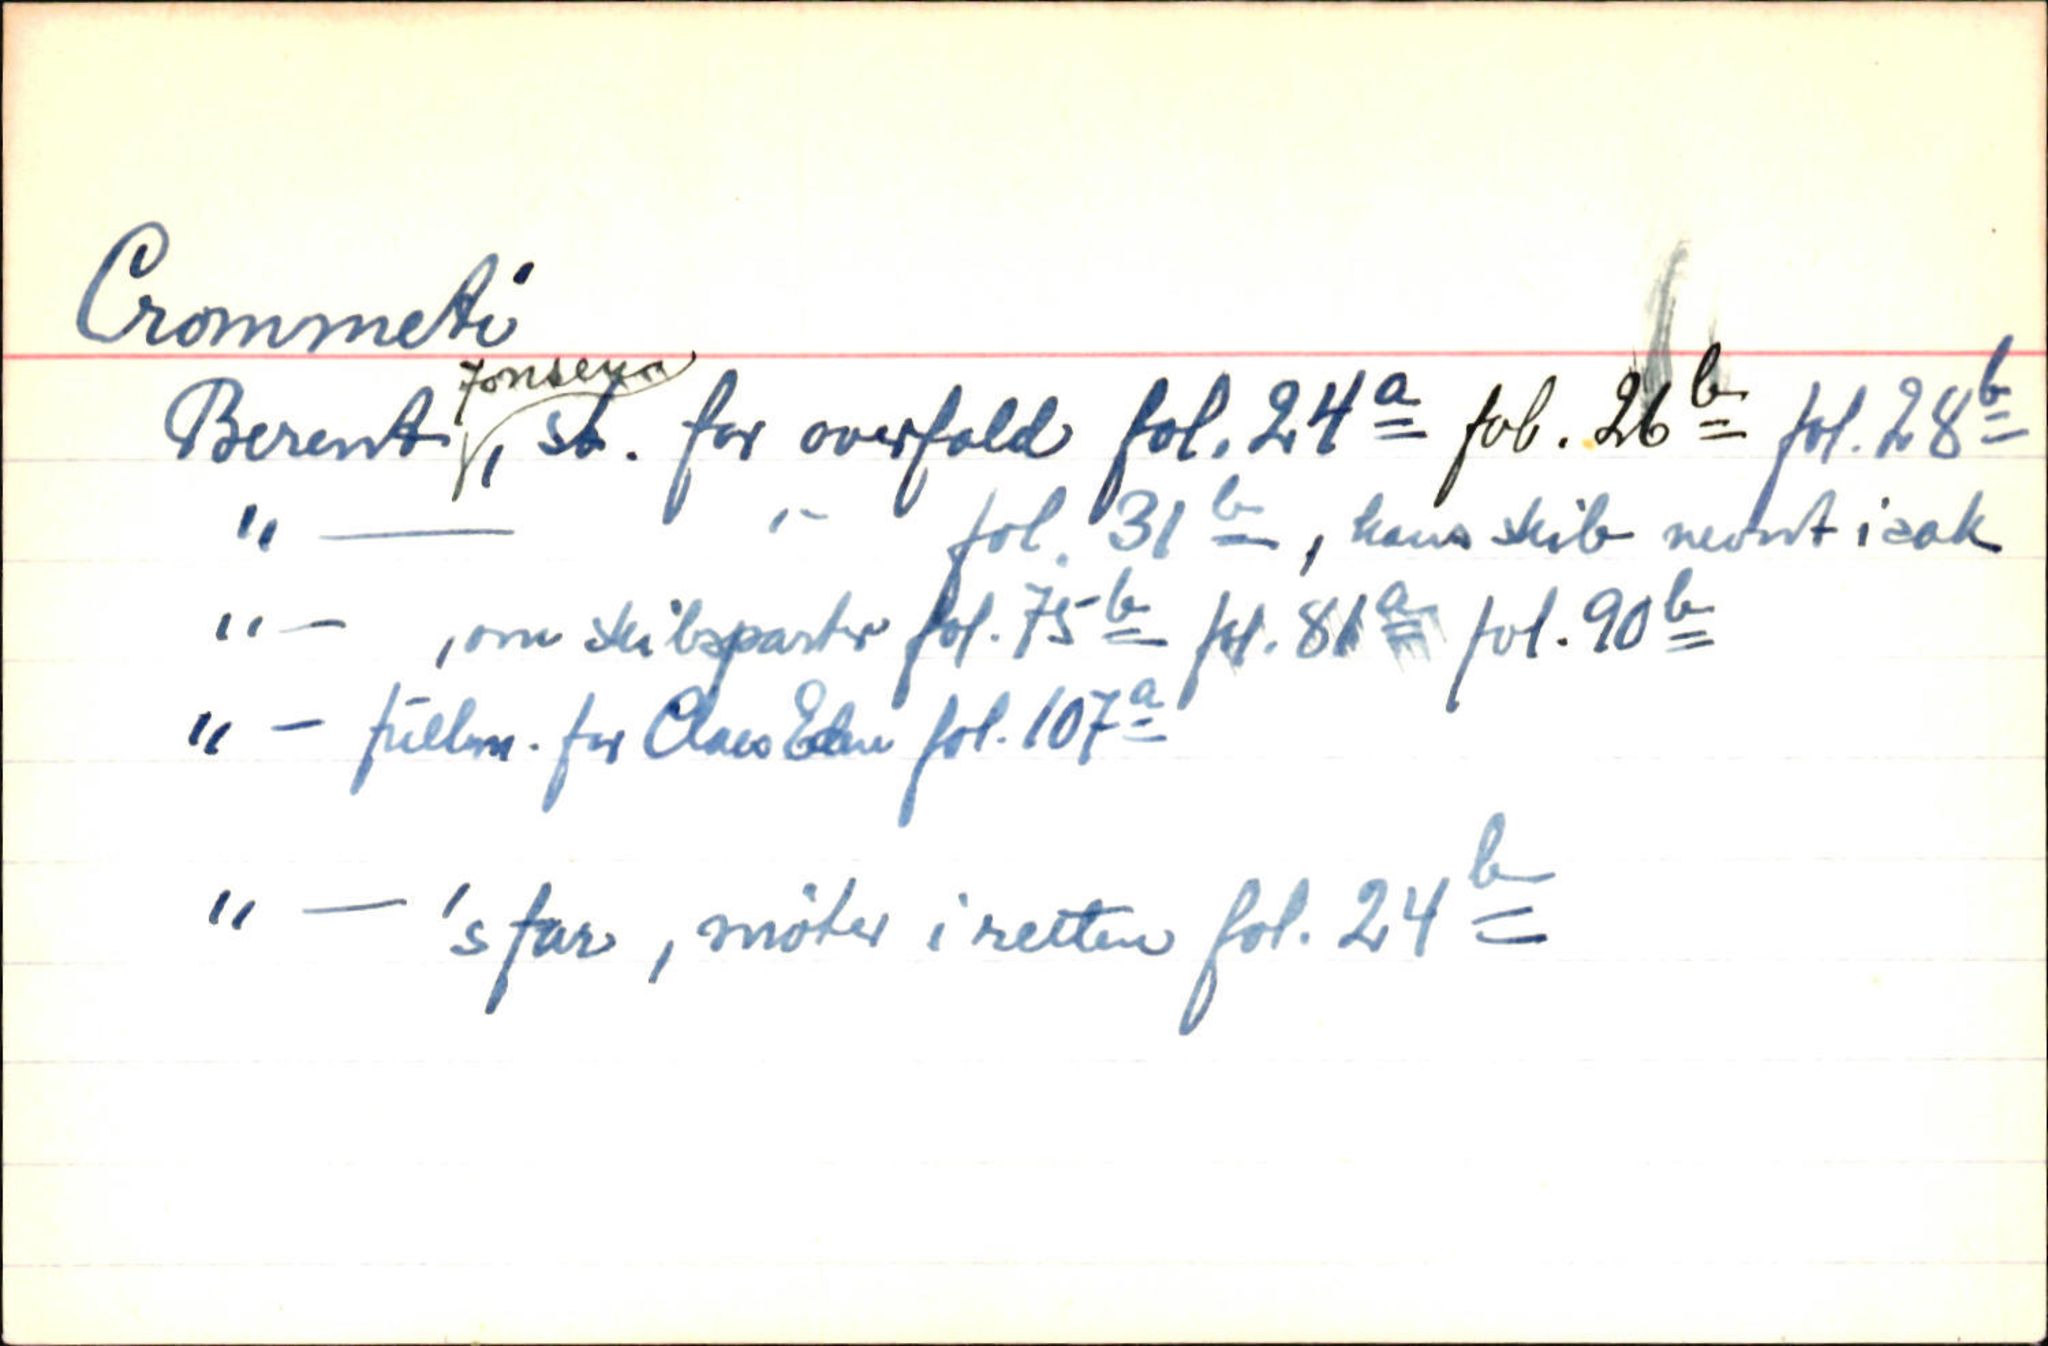 Crommeti
Jonsen
Berent, st. for overfald fol. 24a fol. 26b fol. 28b
" — " fol. 31b, hans skib nevnt i sak
" — , om skibsparter fol. 75b fol. 81a fol. 90b
" — fullm. for Claes Eden fol. 107a
" — 's far, møter i retten fol. 24b